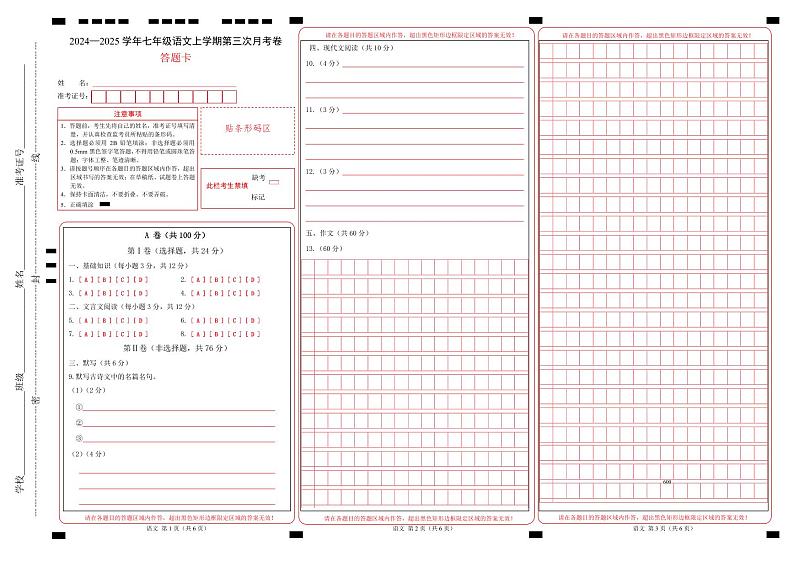 学校
班级
姓名
准考证号
密
封
线
2024—2025 学年七年级语文上学期第三次月考卷
答题卡
姓 名：
准考证号：
注意事项
1．答题前，考生先将自己的姓名，准考证号填写清
楚，并认真检查监考员所粘贴的条形码。
2．选择题必须用 2B 铅笔填涂；非选择题必须用
0.5mm 黑色签字笔答题，不得用铅笔或圆珠笔答
题；字体工整、笔迹清晰。
3．请按题号顺序在各题目的答题区域内作答，超出
区域书写的答案无效；在草稿纸、试题卷上答题
无效。
4．保持卡面清洁，不要折叠、不要弄破。
5．正确填涂
贴条形码区
此栏考生禁填
缺考
标记
A 卷（共 100 分）
第Ⅰ卷（选择题，共 24 分）
一、基础知识（每小题 3 分，共 12 分）
1.［A］［B］［C］［D］ 2.［A］［B］［C］［D］
3.［A］［B］［C］［D］ 4.［A］［B］［C］［D］
二、文言文阅读（每小题 3 分，共 12 分）
5.［A］［B］［C］［D］ 6.［A］［B］［C］［D］
7.［A］［B］［C］［D］ 8.［A］［B］［C］［D］
第Ⅱ卷（非选择题，共 76 分）
三、默写（共 6 分）
9.默写古诗文中的名篇名句。
（1）（2 分）
①
②
③
（2）（4 分）
请在各题目的答题区域内作答，超出黑色矩形边框限定区域的答案无效！
语文 第 1 页（共 6 页）
请在各题目的答题区域内作答，超出黑色矩形边框限定区域的答案无效！
四、现代文阅读（共 10 分）
10.（4 分）
11.（3 分）
12.（3 分）
五、作文（共 60 分）
13.（60 分）
请在各题目的答题区域内作答，超出黑色矩形边框限定区域的答案无效！
语文 第 2 页（共 6 页）
请在各题目的答题区域内作答，超出黑色矩形边框限定区域的答案无效！
600
请在各题目的答题区域内作答，超出黑色矩形边框限定区域的答案无效！
语文 第 3 页（共 6 页）